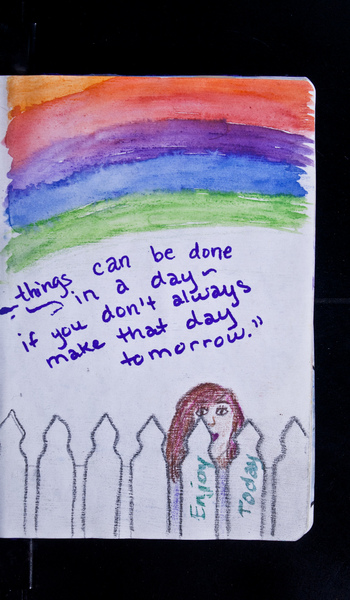 things can be done
in a day~
if you don't always
make that day
tomorrow."
Enjoy
Today